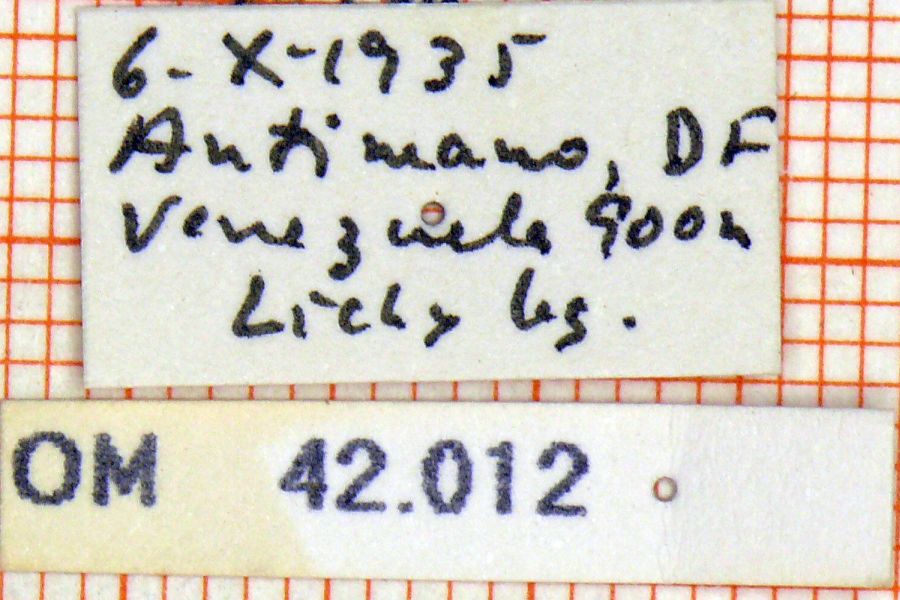 6-X-1935
Antimano, DF
Venezuela 900m
Lichy leg.
OM 42.012